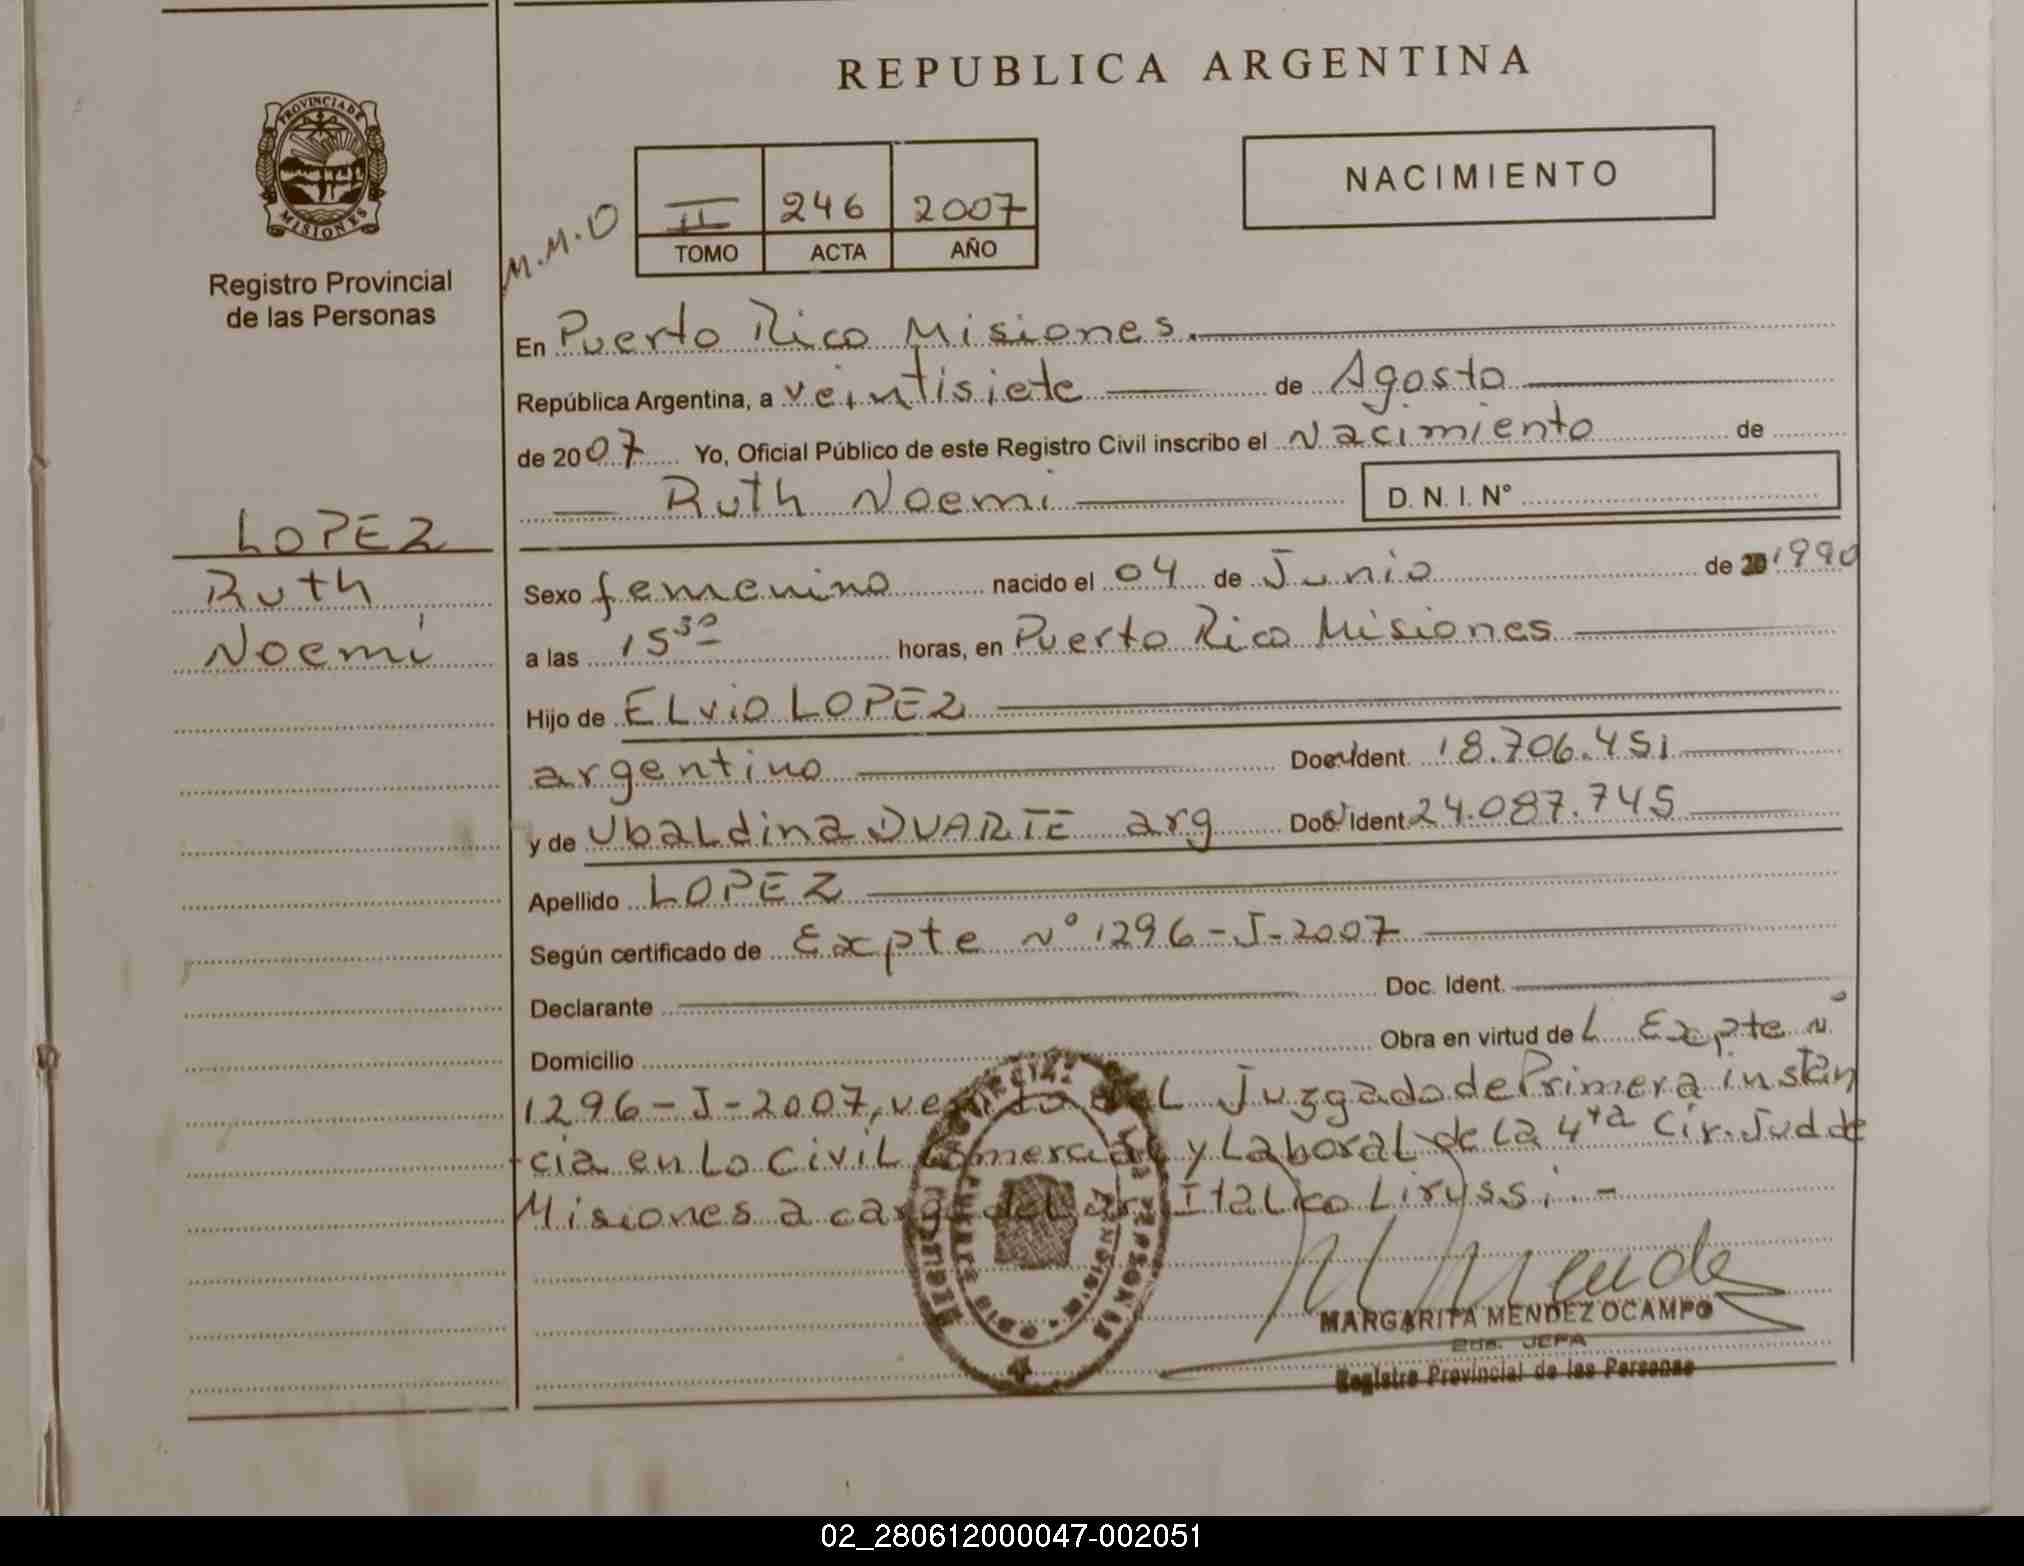 REPUBLICA ARGENTINA
PROVINCIA DE
MISIONES
Registro Provincial
de las Personas
NACIMIENTO
M.M.O
II 246 2007
TOMO ACTA AÑO
En Puerto Rico Misiones.
República Argentina, a veintisiete de Agosto
de 2007 Yo, Oficial Público de este Registro Civil inscribo el Nacimiento de
Ruth Noemi D. N. I. Nº
LOPEZ
Ruth
Noemí
Sexo femenino nacido el 04 de Junio de 1990
a las 15 30 horas, en Puerto Rico Misiones
Hijo de ELviO LOPEZ
argentino Doc. Ident. 18.706.451
y de UbaLdina DUARTE arg Doc. Ident. 24.087.745
Apellido LOPEZ
Según certificado de Expte Nº 1296-J-2007
Declarante Doc. Ident.
Domicilio Obra en virtud de L Expte Nº
1296-J-2007, del Juzgado de Primera instan
cia en Lo CiviL Comercial y Laboral de La 4ta Cir. Jud de
Misiones a cargo del Italico Liryssi.-
MARGARITA MENDEZ OCAMPO
2da. JEFA
Registro Provincial de las Personas
02_280612000047-002051